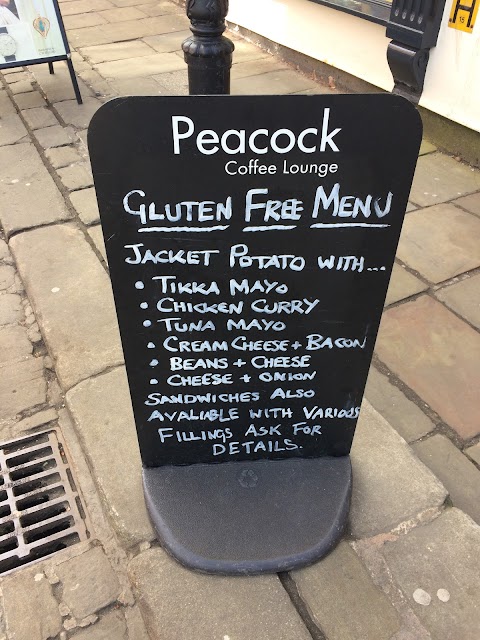 Peacock
Coffee Lounge
GLUTEN FREE MENU
JACKET POTATO WITH...
• TIKKA MAYO
• CHICKEN CURRY
• TUNA MAYO
• CREAM CHEESE + BACON
• BEANS + CHEESE
• CHEESE + ONION
SANDWICHES ALSO
AVALIABLE WITH VARIOUS
FILLINGS ASK FOR
DETAILS.
H